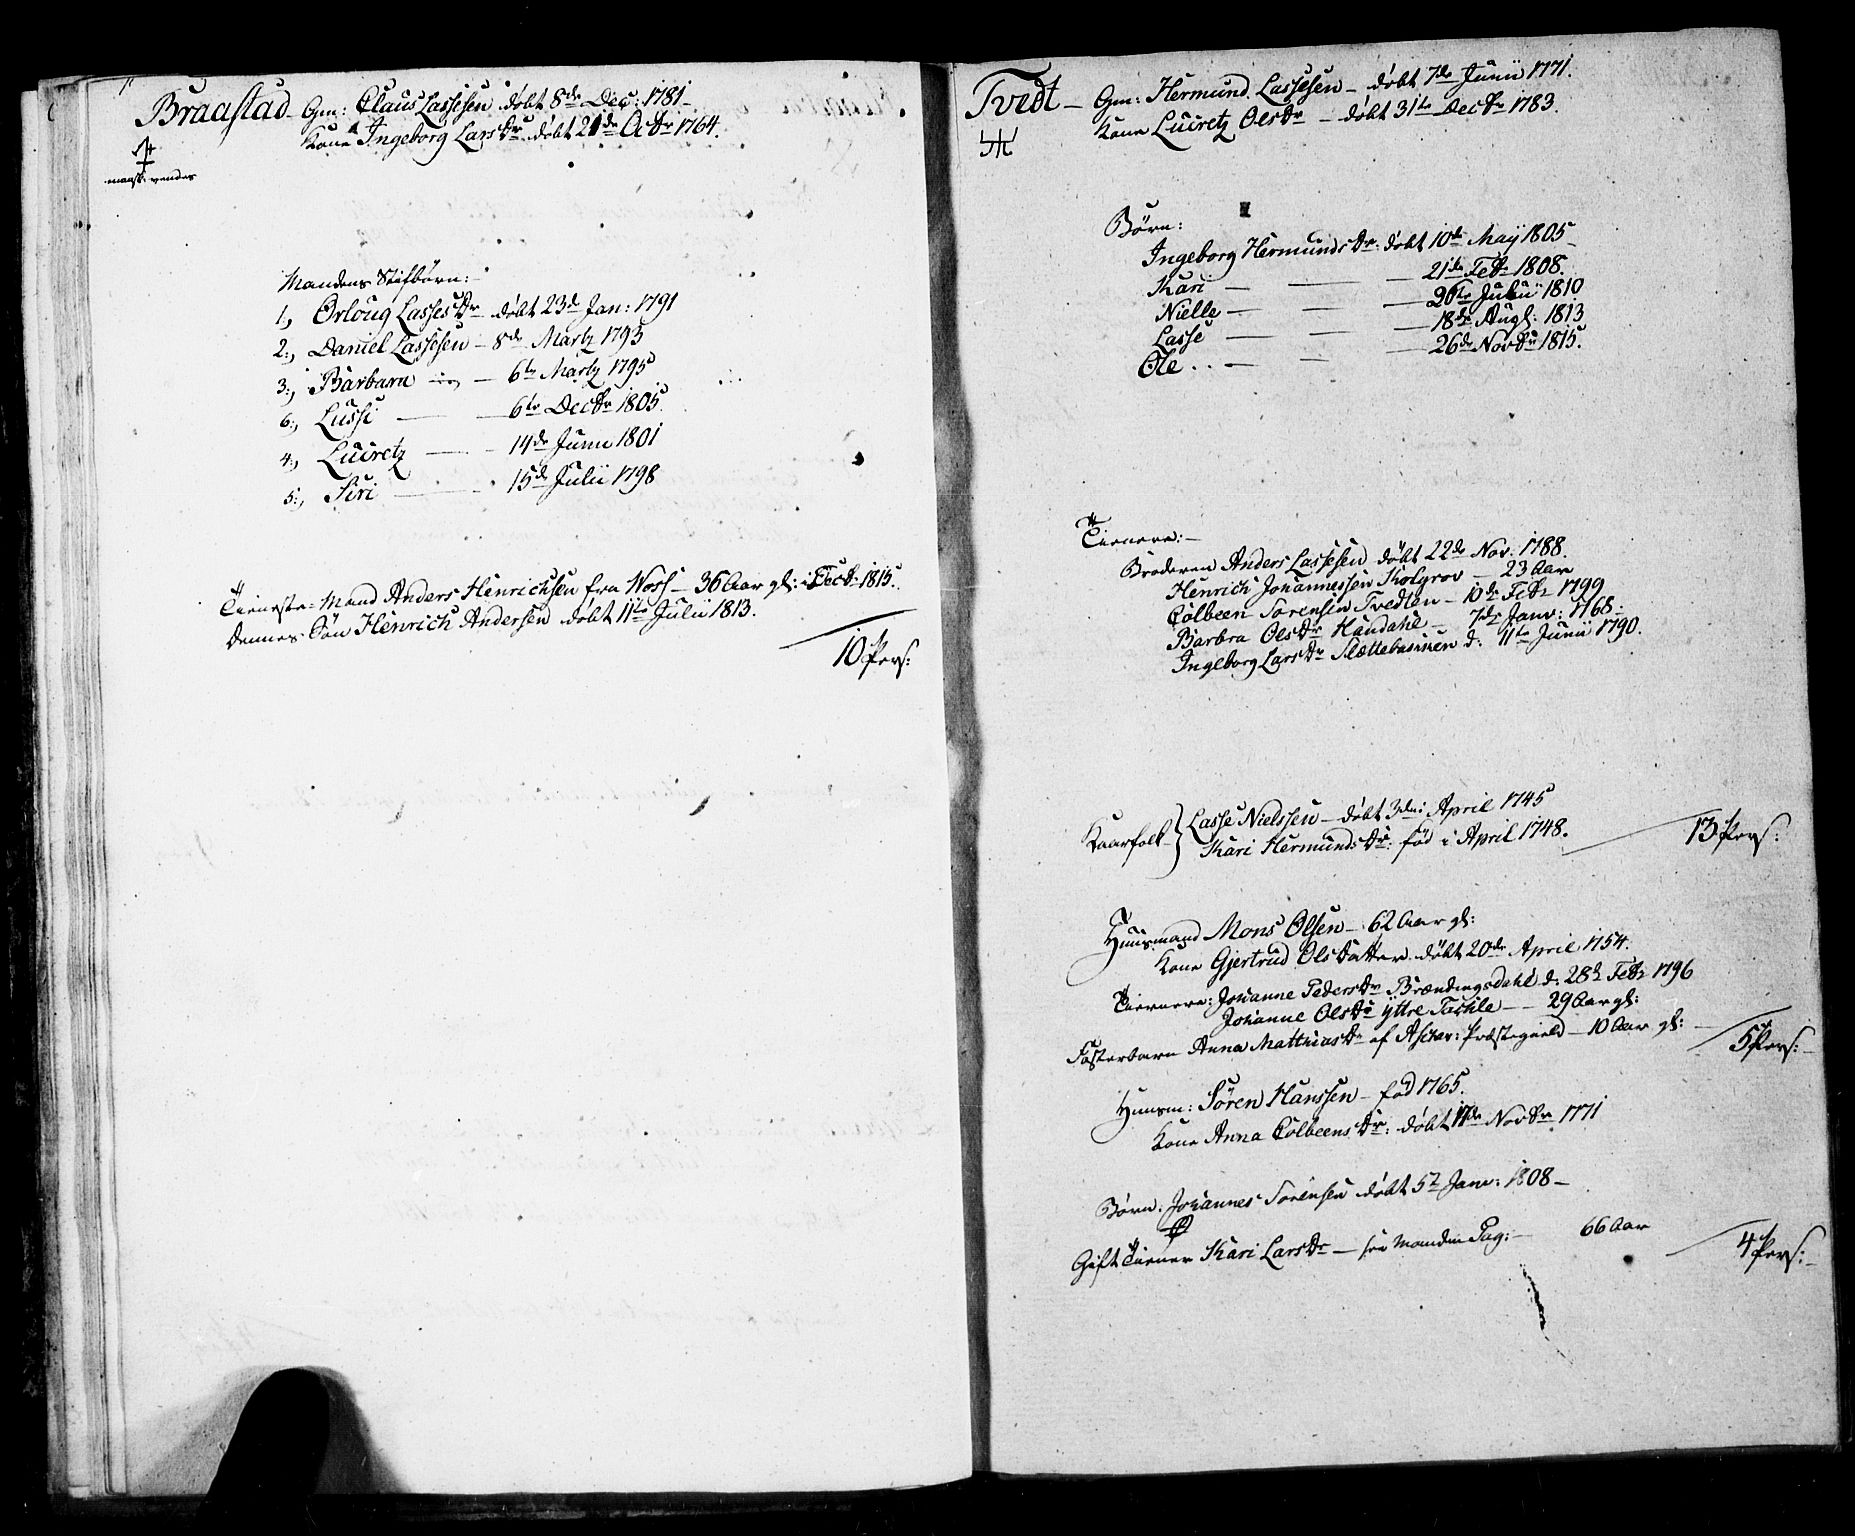 Braastad – Gm: Claus Lassesen døbt 8de Dec: 1781 –
Kone Ingeborg Larsdr døbt 21de Octbr 1764.
maask: vendes
Mandens Stifbørn: –
1:, Orloug Lassesdr døbt 23d Jan: 1791
2:, Daniel Lassesen – 8de Martz 1793
3:, Barbara – 6te Martz 1795
6:, Lussi – 6te Decbr 1805.
4:, Lucretz – 14de Junii 1801
5:, Siri – 15de Julii 1798
Tieneste-Mand Anders Henrichsen fra Voss – 36 Aar gl: i Decbr 1815.
Dennes Søn Henrich Andersen døbt 11te Julii 1813.
10 Pers:
Tvedt – Gm: Hermund Lassesen – døbt 7de Junii 1771.
Kone Lucretz Olsdr – døbt 31te Decbr 1783.
Børn:
Ingeborg Hermundsdr: døbt 10de Maÿ 1805 –
Kari – – – 21de Febr 1808.
Nielle – – – 20te Julii 1810
Lasse – – – 18de Augs: 1813
Ole . . – – – 26de Novbr 1815.
Tienere: –
Broderen Anders Lassesen døbt 22de Nov: 1788.
Henrich Johannessen Kolgrov – 23 Aar
Colbeen Sørensen Tvedten – 10de Febr 1799
Barbra Olsdr Haudahl – 7de Janv: 1768:
Ingeborg Larsdr Slettebakken d: 11te Junii 1790.
Kaarfolk } Lasse Nielssen – døbt 3die April 1745
Kari Hermundsdr: fød i April 1748.
13 Pers:
Huusmand Mons Olsen – 62 Aar gl:
Kone Gjertrud Olsdatter døbt 20de April 1754.
Tienere: Johanne Pedersdr Brændingsdahl d. 28d Febr 1796
Johanne Olsdr ÿttre Tackle – 29 Aar gl:
Fosterbarn Anna Matthiasdr af Askev: Præstegield – 10 Aar gl: –
5 Pers: –
Huusm: Søren Hanssen – fød 1765.
Kone Anna Colbeensdr: døbt 17de Novbr 1771
Børn: Johannes Sørensen døbt 5t Janv: 1808 –
Gift Tiener Kari Larsdr – see Manden Pag: – 66 Aar
4 Pers: –